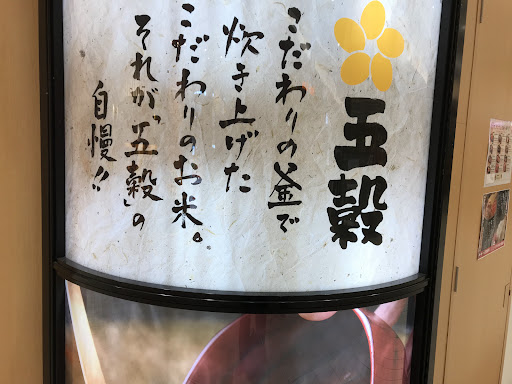 五穀
こだわりの釜で
炊き上げた
こだわりのお米。
それが“五穀”の
自慢!!